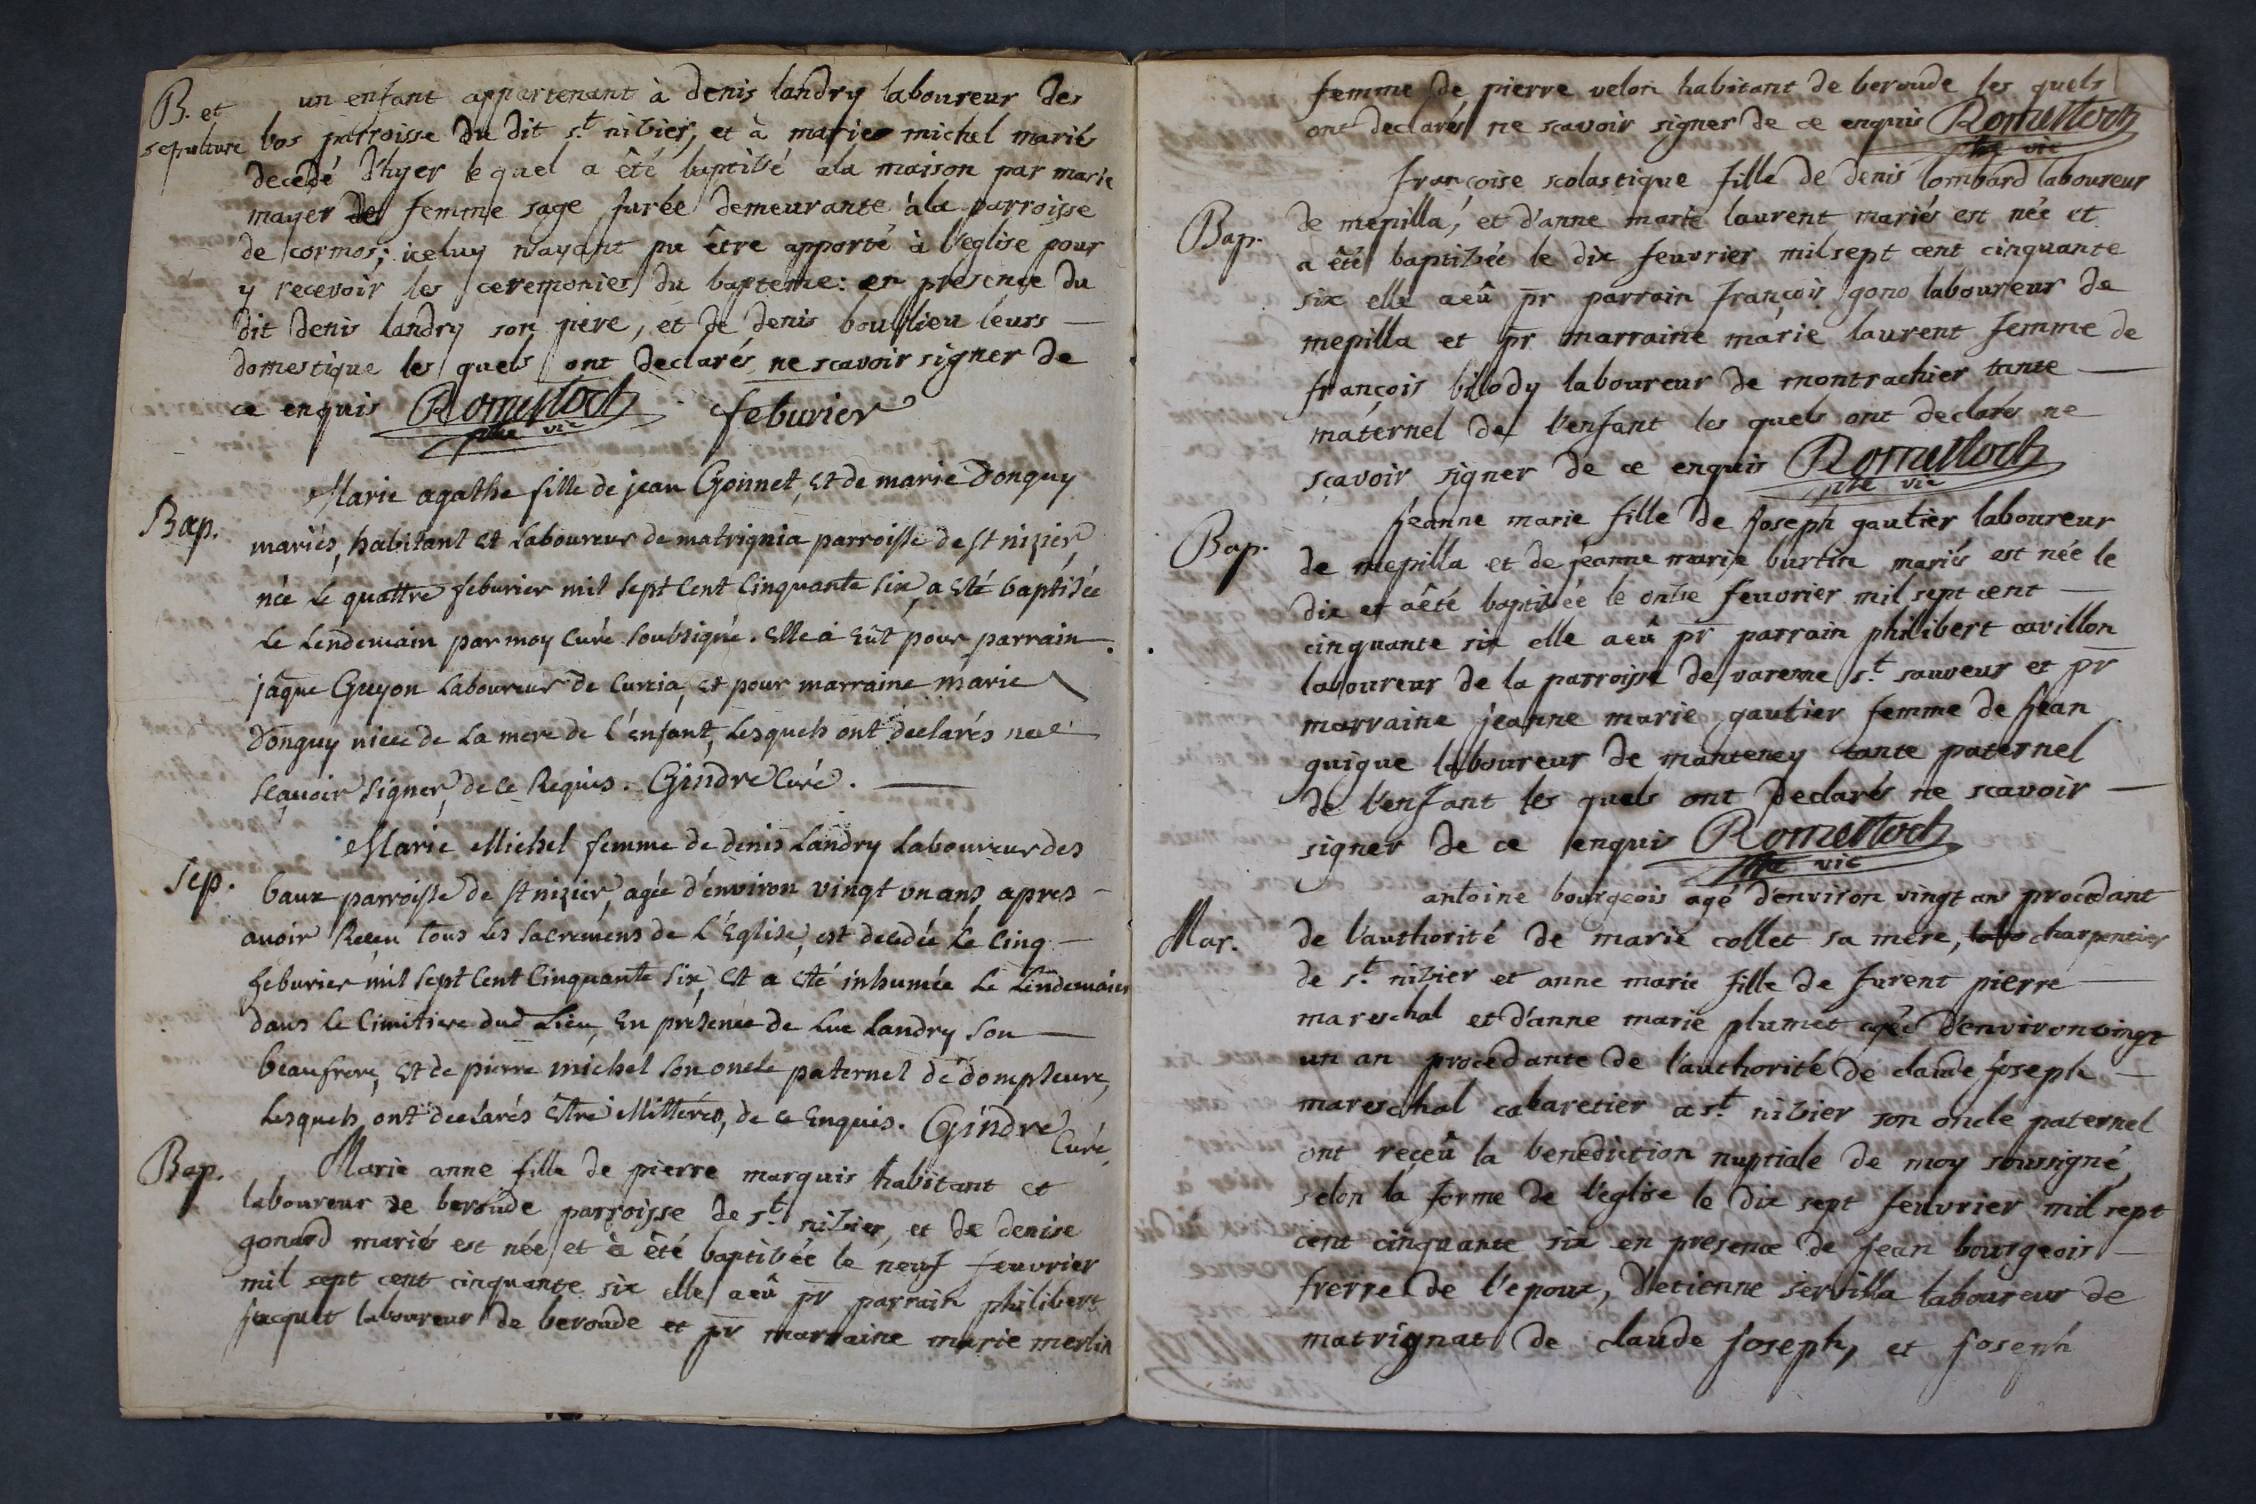 B. et
sepulture
un enfant appartenant à denis landry laboureur des
bos parroisse du dit s.t nizier, et à marie michel mariés
decedé d'hyer le quel a êté baptisé a la maison par marie
mayer femme sage jurée demeurante à la parroisse
de cormos; iceluy n'ayant pu être apporté à l'eglise pour
y recevoir les ceremonies du bapteme: en presence du
dit denis landry son pere, et de denis boullieu leurs
domestique les quels ont declarés ne scavoir signer de
ce enquis Romestoch
ptre vic
feburier
Bap.
Marie agathe fille de jean Goinnet, et de marie Donguy
mariés, habitant et Laboureur de matrignia parroisse de st nizier
née le quattre feburier mil sept cent cinquante six, a esté baptisée
le lendemain par moy curé soubsigné. elle a eüt pour parrain
jâque Guyon Laboureur de Curcia, et pour marraine marie
Donguy niece de la mere de l'enfant, lesquels ont declarés ne
sçavoir signer, de ce Requis. Gindre Curé.
Sep.
Marie Michel femme de denis Landry Laboureur des
baux parroisse de st nizier, agée d'environ vingt un ans, apres
avoir Receu tous les sacremens de l'Eglise, est decedée le cinq
feburier mil sept cent cinquante six, et a eté inhumée le Lendemain
dans le cimitiere dud Lieu, en présence de Luc Landry son
beaufrere, et de pierre michel son oncle paternel de dompleure,
lesquels ont declarés être illitterés, de ce enquis. Gindre
Curé
Bap.
Marie anne fille de pierre marquis habitant et
laboureur de beroude parroisse de s.t nizier, et de denise
gonard mariés est née et à êté baptisée le neuf feuvrier
mil sept cent cinquante six elle a eû pr parrain philibert
jacquet laboureur de beroude et pr marraine marie merlin
femme de pierre velon habitant de beroude les quels
ont declarés ne scavoir signer de ce enquis Romestoch
ptre vic
Bap.
françoise scolastique fille de denis lombard laboureur
de mepilla, et d'anne marie laurent mariés est née et
a êté baptisée le dix feuvrier mil sept cent cinquante
six elle a eû pr parrain françois gono laboureur de
mepilla et pr marraine marie laurent femme de
françois bilody laboureur de montrachier tante
maternel de l'enfant les quels ont declarés ne
sçavoir signer de ce enquis Romestoch
ptre vic
Bap.
jeanne marie fille de joseph gautier laboureur
de mepilla et de jeanne marie burtin mariés est née le
dix et a êté baptisée le onze feuvrier mil sept cent
cinquante six elle a eû pr parrain philibert cavillon
laboureur de la parroisse de varenne s.t sauveur et pr
marraine jeanne marie gautier femme de jean
guigue laboureur de manteney tante paternel
de l'enfant les quels ont declarés ne scavoir
signer de ce enquis Romestoch
ptre vic
Mar.
antoine bourgeois agé d'environ vingt ans procedant
de l'authorité de marie collet sa mere, charpentier
de s.t nizier et anne marie fille de furent pierre
mareschal et d'anne marie plumet agée d'environ vingt
un an procedante de l'authorité de claude joseph
mareschal cabaretier a s.t nizier son oncle paternel
ont reçeû la benediction nuptiale de moy soussigné,
selon la forme de l'eglise le dix sept feuvrier mil sept
cent cinquante six en presence de jean bourgeois
frerre de l'epoux, d'etienne servilla laboureur de
matrignat de claude joseph, et joseph